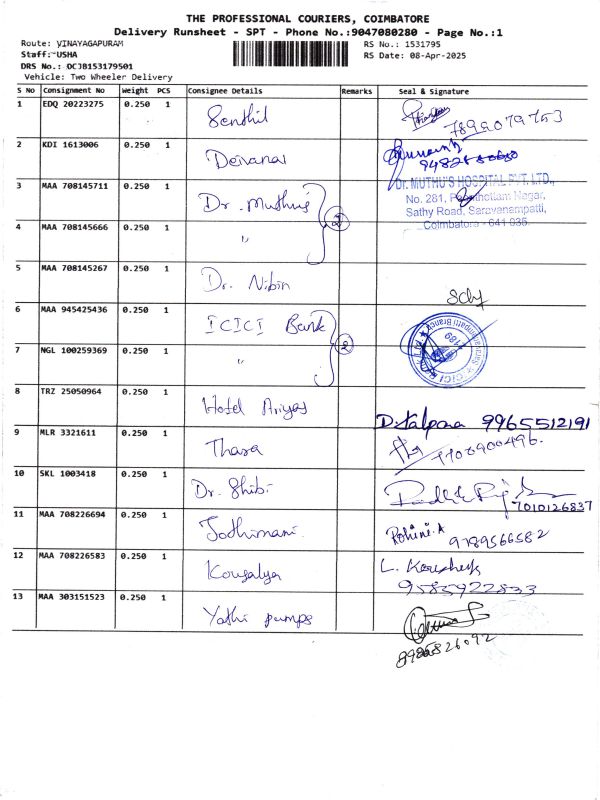 THE PROFESSIONAL COURIERS, COIMBATORE
Delivery Runsheet - SPT - Phone No.:9047080280 - Page No.:1
Route: VINAYAGAPURAM
RS No.: 1531795
Staff: USHA
RS Date: 08-Apr-2025
DRS No.: OCJB153179501
Vehicle: Two Wheeler Delivery
S No Consignment No Weight PCS Consignee Details Remarks Seal & Signature
1 EDQ 20223275 0.250 1 Senthil 7899079753
2 KDI 1613006 0.250 1 Deivanai
3 MAA 708145711 0.250 1 Dr. Muthus 2
Dr. MUTHU'S HOSPITAL PVT. LTD.,
No. 281, Nagar,
Sathy Road, Saravanampatti,
Coimbatore - 641 035.
4 MAA 708145666 0.250 1 "
5 MAA 708145267 0.250 1 Dr. Nibin
6 MAA 945425436 0.250 1 ICICI Bank 2
7 NGL 100259369 0.250 1 "
8 TRZ 25050964 0.250 1 Hotel Ariyas D. Kalpana 9965512191
9 MLR 3321611 0.250 1 Thara 7708900496.
10 SKL 1003418 0.250 1 Dr. Shibi 7010126837
11 MAA 708226694 0.250 1 Jothimani Rohini.A 9789566582
12 MAA 708226583 0.250 1 Kousalya L.
9585922833
13 MAA 303151523 0.250 1 Yathi pumps